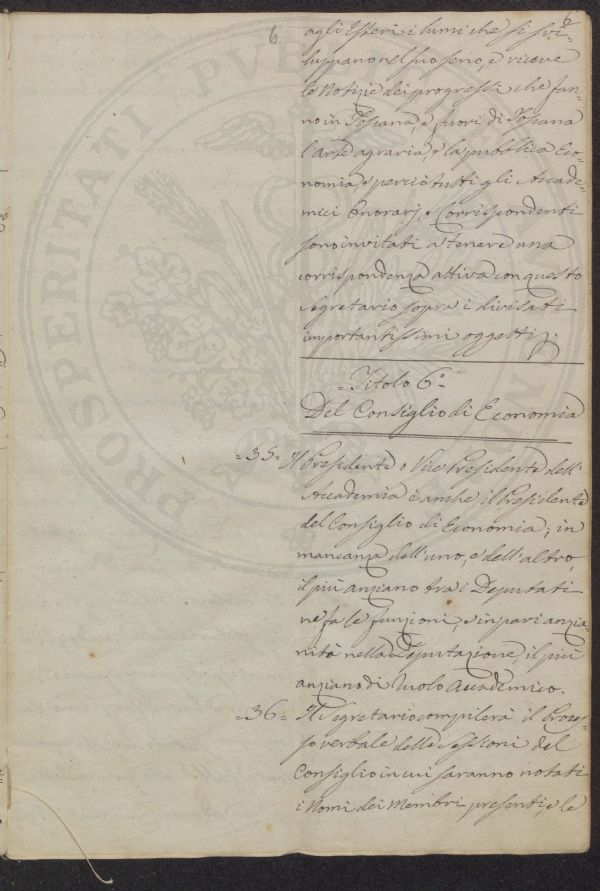 6
6
agli Esteri i lumi che si svi-
luppano nel suo seno, e riceve
le Notizie dei progressi che fan-
no in Toscana, e fuori di Toscana
l'arte agraria, e la pubblica Eco-
nomia, e perciò tutti gli Accade-
mici Onorarj, e Corrispondenti
sono invitati a tenere una
corrispondenza attiva con questo
Segretario sopra i divisati
importantissimi oggetti.
= Titolo 6.°
Del Consiglio di Economia
= 35 = Il Presidente o Vice Presidente dell'
Accademia è anche il Presidente
del Consiglio di Economia; in
mancanza dell'uno, e dell'altro,
il più anziano tra i Deputati
ne fa le funzioni, e in pari anzia-
nità nella Deputazione, il più
anziano di Ruolo Accademico.
= 36 = Il Segretario compilerà il Proces-
so verbale delle Sessioni del
Consiglio in cui saranno notati
i Nomi dei Membri presenti, e le
PROSPERITATI PVBLICAE